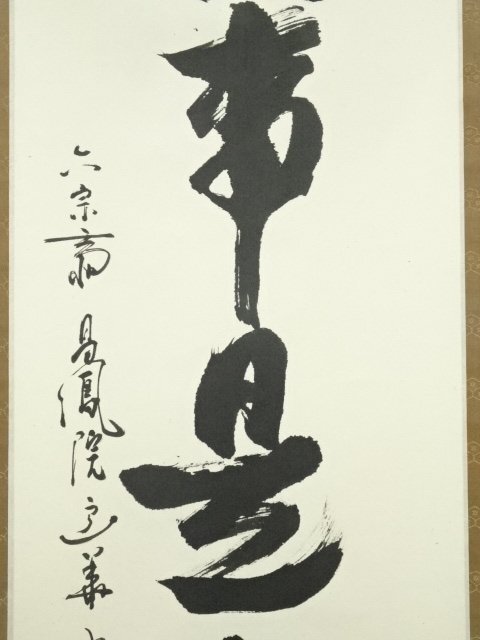 事是
六宗斎 昌鳳院